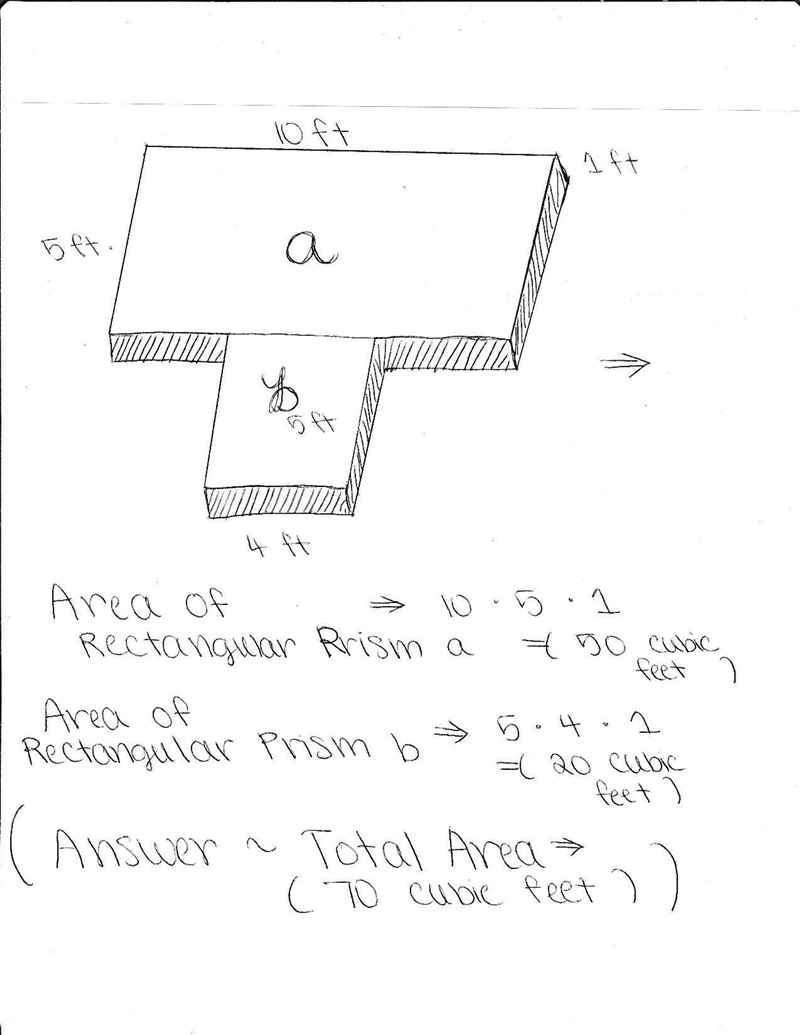 10 ft
1 ft
5 ft.
a
b
5 ft
4 ft
Area of ⇒ 10 · 5 · 1
Rectangular Prism a =( 50 cubic
feet )
Area of
Rectangular Prism b ⇒ 5 · 4 · 1
=( 20 cubic
feet )
( Answer ~ Total Area ⇒
( 70 cubic feet ) )